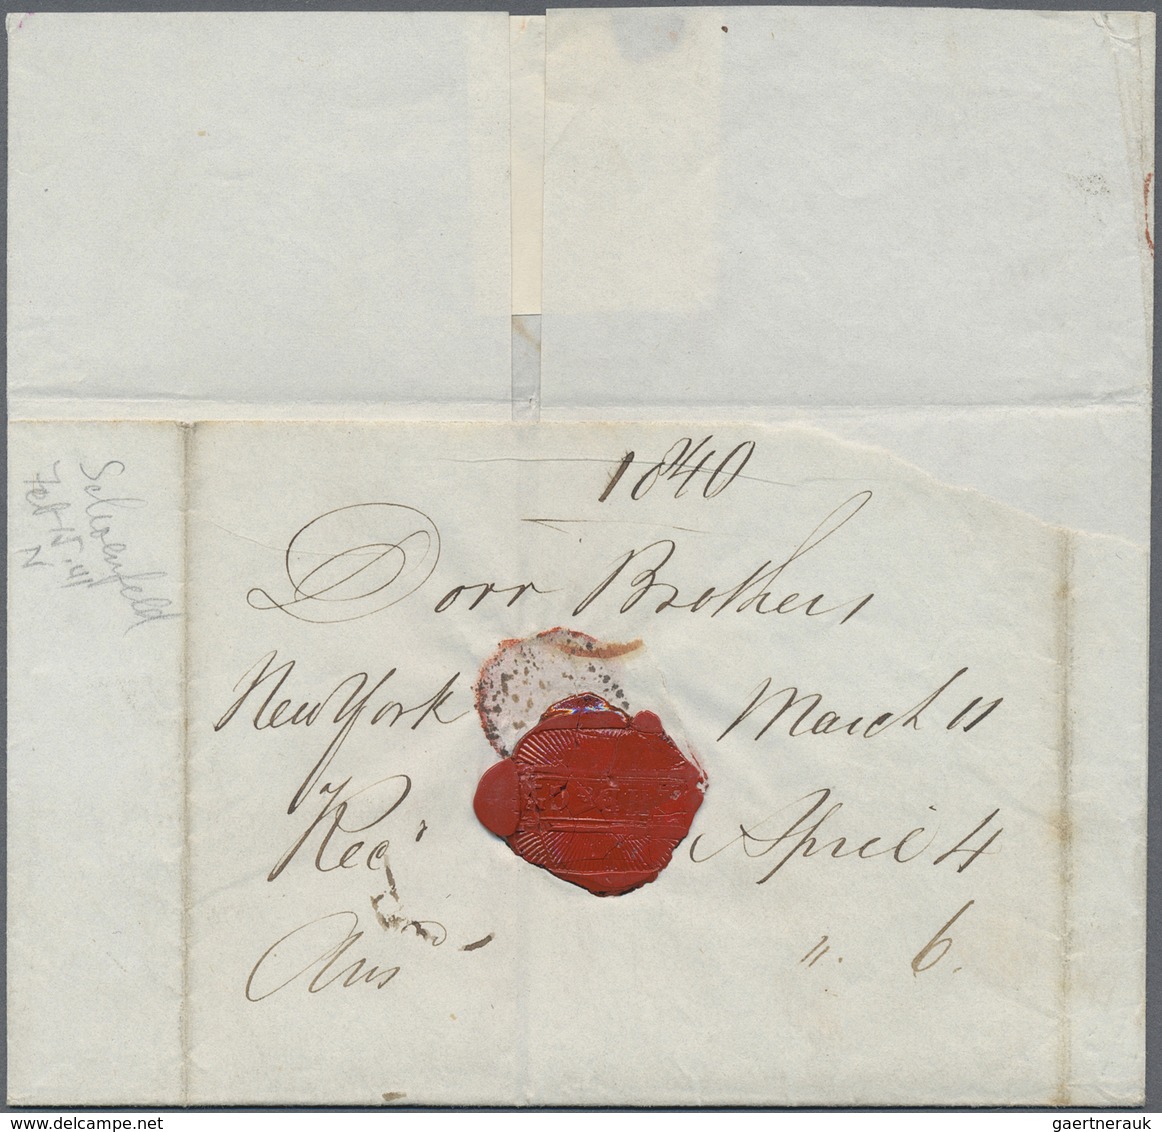 1840
Dorr Brothers
New York March 11
Rec'd April 4
Ans " 6.
Schoenfeld
Feb 15 . 41
N
gaertnerauk